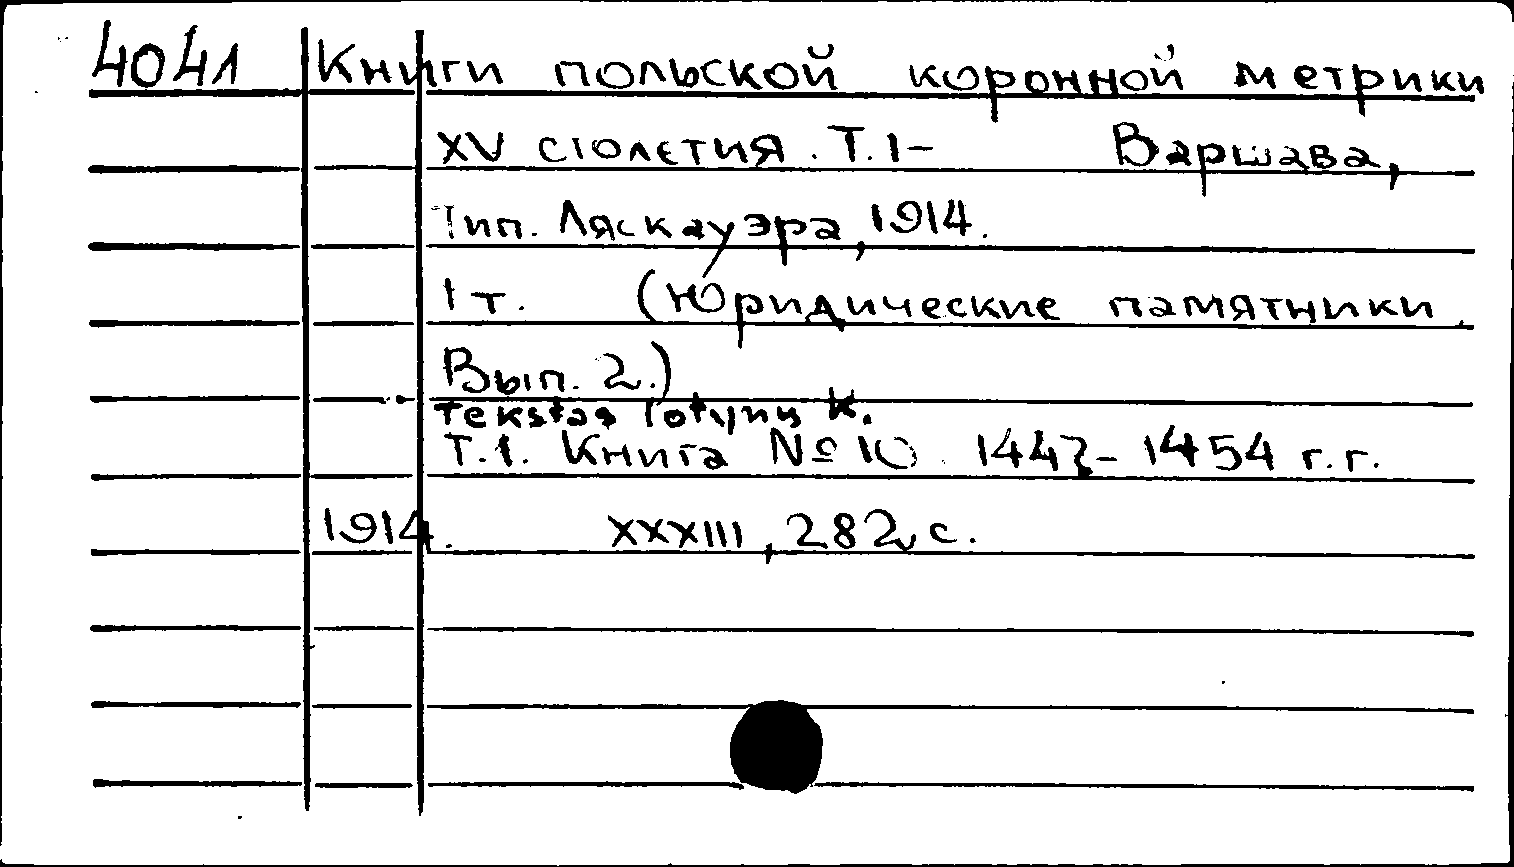 4041 Книги польской коронной метрики
XV столетия. Т. 1- Варшава,
Тип. Ляскауэра, 1914.
1 т. (Юридические памятники.
Вып. 2.)
Tekstas lotynų k.
Т.1. Книга № 10 1447-1454 г.г.
1914. XXXIII, 282 с.